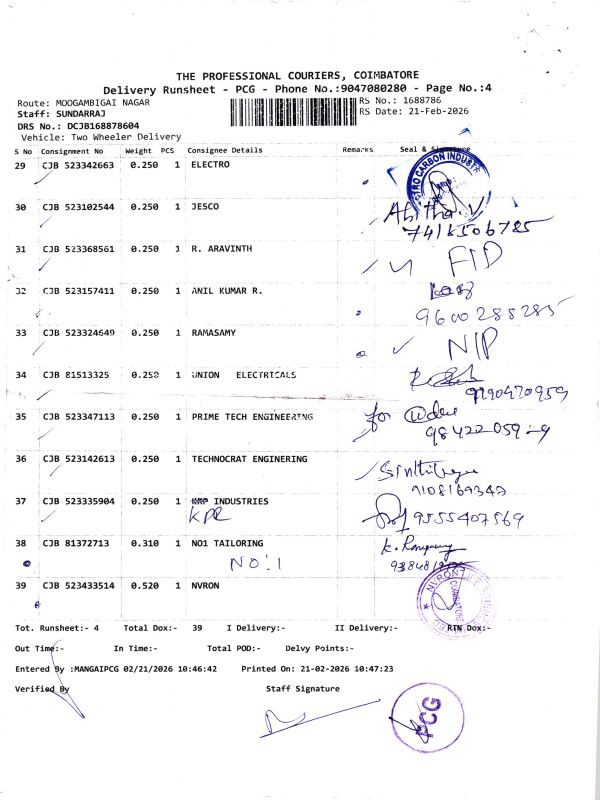 THE PROFESSIONAL COURIERS, COIMBATORE
Delivery Runsheet - PCG - Phone No.:9047080280 - Page No.:4
Route: MOOGAMBIGAI NAGAR
RS No.: 1688786
Staff: SUNDARRAJ
RS Date: 21-Feb-2026
DRS No.: DCJB168878604
Vehicle: Two Wheeler Delivery
S No Consignment No Weight PCS Consignee Details Remarks Seal & Signature
29 CJB 523342663 0.250 1 ELECTRO
30 CJB 523102544 0.250 1 JESCO Abitha.V
31 CJB 523368561 0.250 1 R. ARAVINTH
32 CJB 523157411 0.250 1 ANIL KUMAR R.
9600288285
33 CJB 523324649 0.250 1 RAMASAMY
34 CJB 81513325 0.250 1 UNION ELECTRICALS
9790470959
35 CJB 523347113 0.250 1 PRIME TECH ENGINEERING for
36 CJB 523142613 0.250 1 TECHNOCRAT ENGINERING
37 CJB 523335904 0.250 1 KRP INDUSTRIES
9555407569
38 CJB 81372713 0.310 1 NO1 TAILORING
NO:1
39 CJB 523433514 0.520 1 NVRON
Tot. Runsheet:- 4 Total Dox:- 39 I Delivery:- II Delivery:- RTN Dox:-
Out Time:- In Time:- Total POD:- Delvy Points:-
Entered By :MANGAIPCG 02/21/2026 10:46:42 Printed On: 21-02-2026 10:47:23
Verified By Staff Signature
PCG